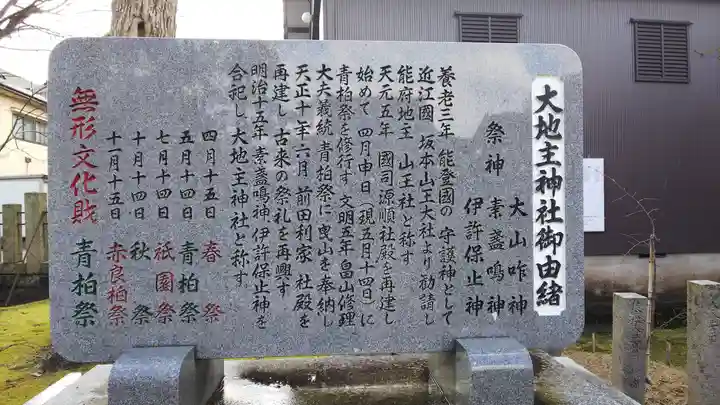 大地主神社御由緒
祭神
大山咋神
素盞鳴神
伊許保止神
養老三年 能登國の守護神として
近江國 坂本山王大社より勧請し
能府地主 山王社と称す
天元五年 國司源順社殿を再建し
始めて 四月申日(現五月十四日)に
青柏祭を修行す 文明五年畠山修理
大夫義統 青柏祭に曳山を奉納し
天正十年六月 前田利家 社殿を
再建し 古来の祭礼を再興す
明治十五年 素盞鳴神 伊許保止神を
合祀し 大地主神社と称す
四月十五日 春祭
五月十四日 青柏祭
七月十四日 祇園祭
十月十四日 秋祭
十一月十五日 赤良柏祭
無形文化財 青柏祭